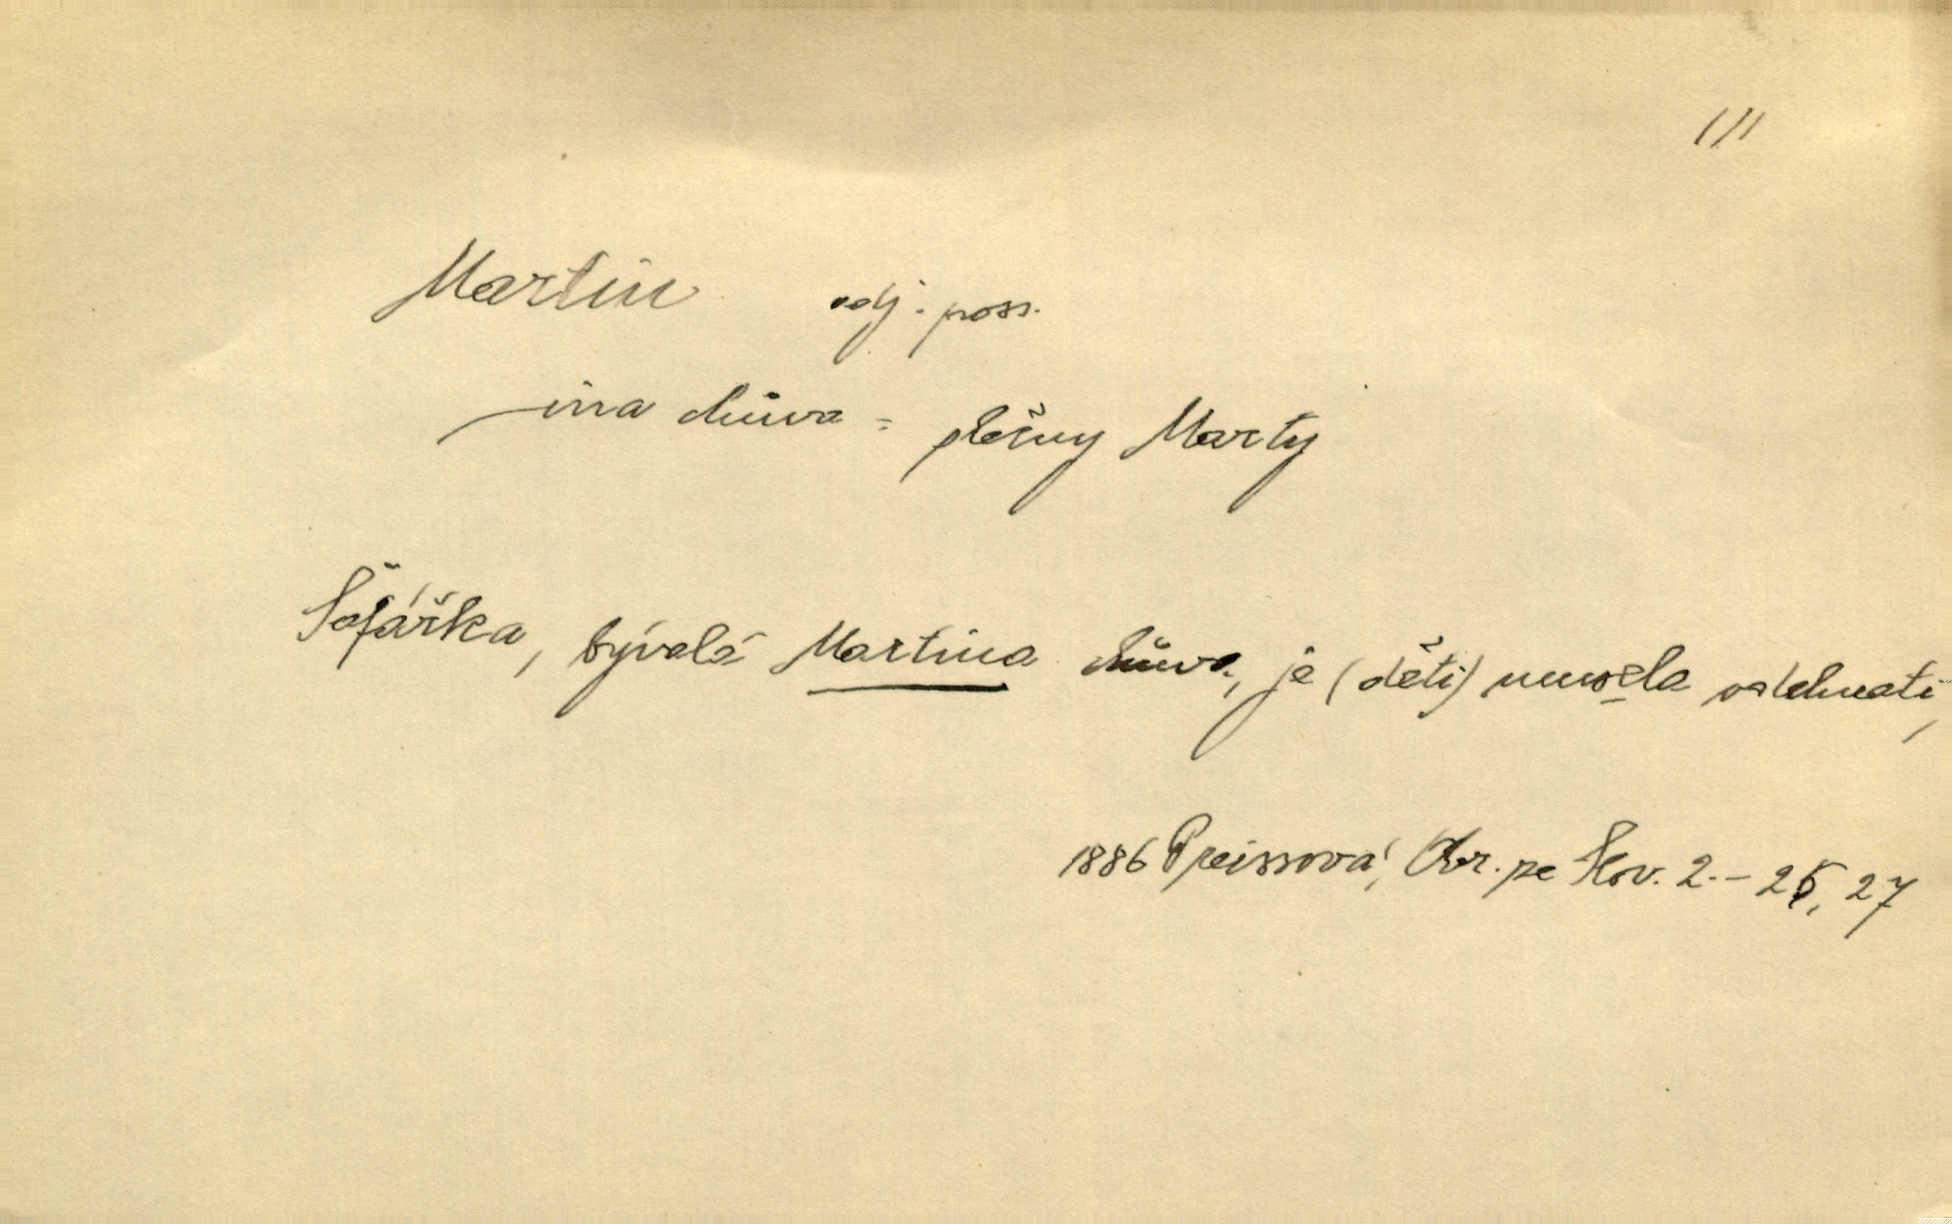 111
Martin adj. poss.
–ina chůva = slečny Marty
Šafářka, bývalá Martina chůva, je (děti) musela oslehnati,
1886 Preissová, Obr. ze Slov. 2.– 26, 27